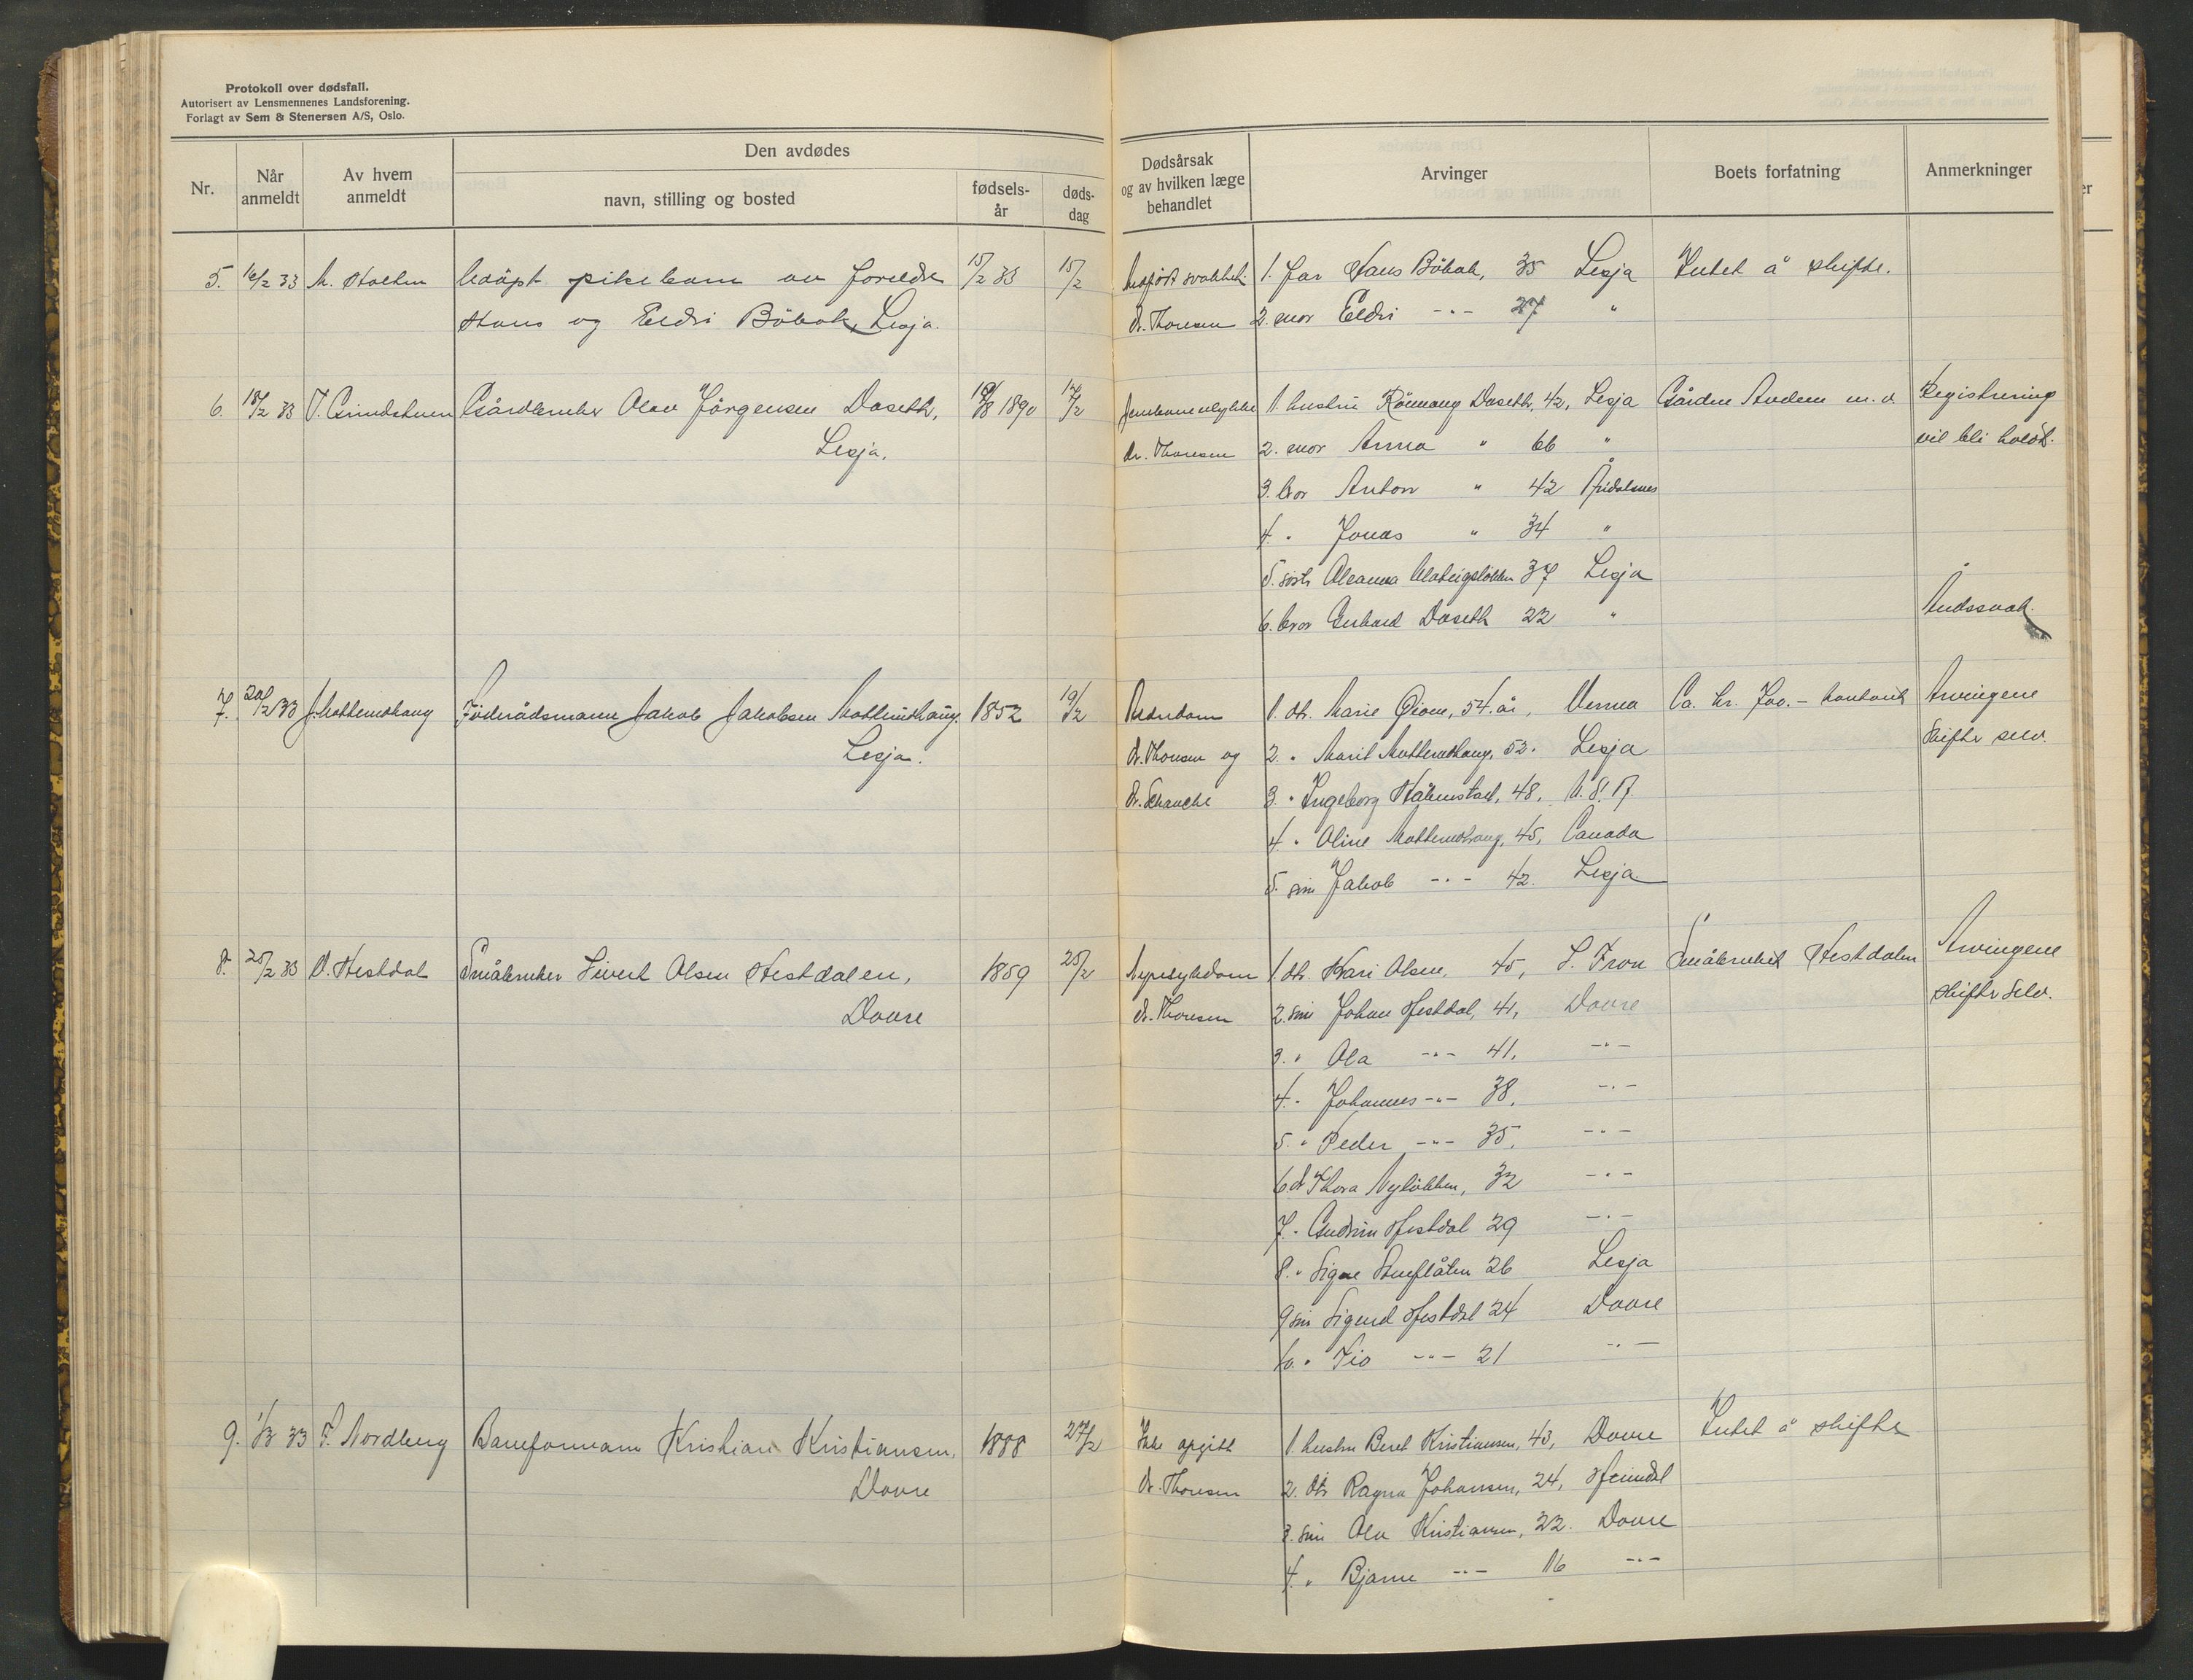 Protokoll over dødsfall.
Autorisert av Lensmennenes Landsforening.
Forlagt av Sem & Stenersen A/S, Oslo.
Nr. Når anmeldt Av hvem anmeldt Den avdødes navn, stilling og bosted fødsels-år døds-dag Dødsårsak og av hvilken læge behandlet Arvinger Boets forfatning Anmerkninger
5. 16/2 33 M. Holten Udöpt pikebarn av foreldre 15/2 33 15/2 Medfödt svakhet 1. far Hans Böbak, 35 Lesja Intet å skifte.
Hans og Eldri Böbak, Lesja. dr. Thoresen 2. mor Eldri -"- 27 "
6. 18/2 33 J. Grindstuen Gårdbruker Olav Jörgensen Daseth, 19/8 1890 17/2 Jernbaneulykke 1. hustru Rönnaug Daseth, 42, Lesja Gården Andem m.v. Registrering
Lesja. dr. Thoresen 2. mor Anna " 66 " vil bli holdt.
3. bror Anton " 42 Åndalsnes
4. " Jonas " 34 "
5. søster 37 Lesja
6. bror Gerhard Daseth 22 " Åndssvak.
7. 20/2 33 J. Mottemshaug Föderådsmann Jakob Jakobsen Mottemshaug. 1852 19/2 Alderdom 1. dtr. Marie Öien, 54 år, Verma Ca. kr. 700.- kontant Arvingene
Lesja. dr. Thoresen og 2. " Marit Mottemshaug, 52. Lesja skifter selv.
dr. Schanche 3. " Ingeborg 48, U.S.A.
4. " Oline Mottemshaug, 45, Canada
5. sön Jakob -"- 42. Lesja
8. 25/2 33 O. Hestdal Småbruker Sivert Olsen Hestdalen, 1859 25/2 Nyresykdom 1. dtr. Kari Olsen, 45, S. Fron Småbruket Hestdalen Arvingene
Dovre dr. Thoresen 2. sön Johan Hestdal, 41, Dovre skifter selv.
3. " Ola -"- 41, -"-
4. " Johannes -"- 38, -"-
5. " Peder -"- 35, -"-
6. dtr Thora Nylökken, 32 -"-
7. " Gudrun Hestdal 29 -"-
8. " Signe 26 Lesja
9 sön Sigurd Hestdal 24 Dovre
10. " -"- 21 -"-
9. 1/3 33 F. Nordberg Baneformann Kristian Kristiansen, 1888 27/2 Ikke opgitt 1. hustru Beret Kristiansen, 43, Dovre Intet å skifte
Dovre dr. Thoresen 2. dtr Ragna Johansen, 24, Heimdal
3. sön Olav Kristiansen, 22. Dovre
4. " Bjarne -"- 16 -"-